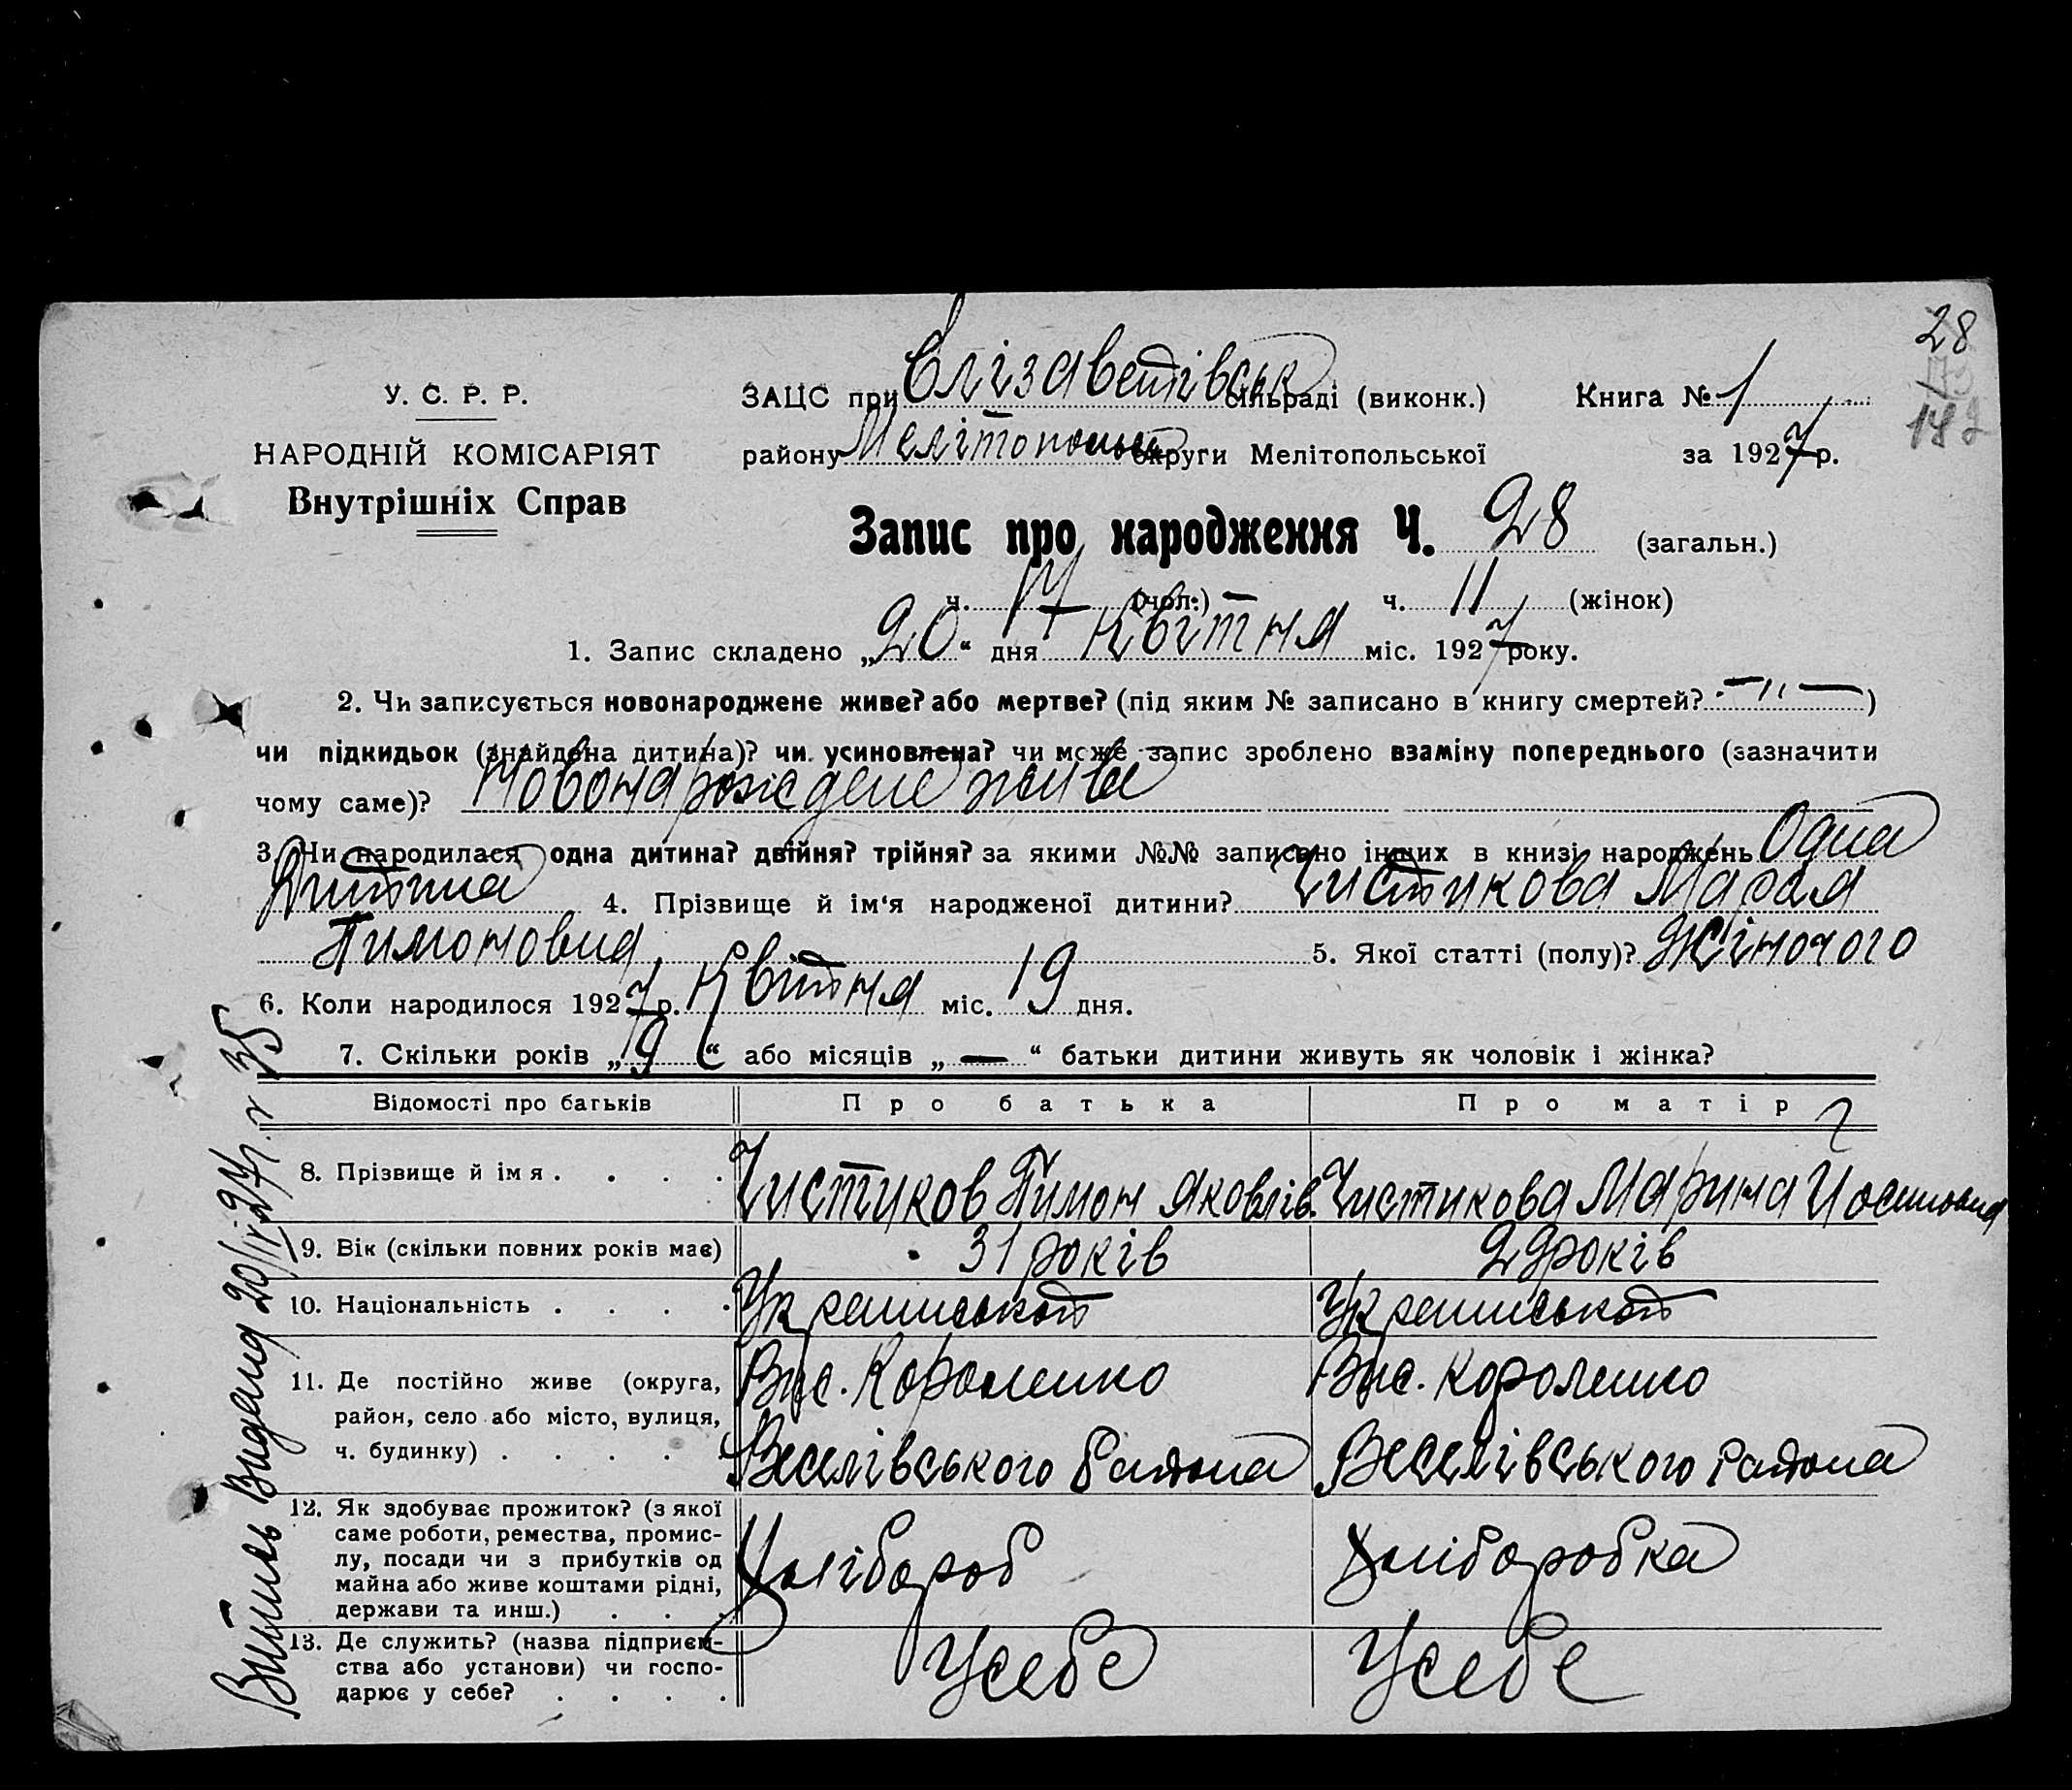 28
У. С. Р. Р.
НАРОДНІЙ КОМІСАРІЯТ
Внутрішніх Справ
ЗАЦС при Єлізаветівськ сільраді (виконк.)
Книга № 1
142
району Мелітопольськ округи Мелітопольської
за 1927 р.
Запис про народження Ч. 28 (загальн.)
ч. 17 (чол.) — ч. 11 (жінок)
1. Запис складено „20“ дня Квітня міс. 1927 року.
2. Чи записується новонароджене живе? або мертве? (під яким № записано в книгу смертей? —„—)
чи підкидьок (знайдена дитина)? чи усиновлена? чи може запис зроблено взаміну попереднього (зазначити
чому саме)? Новонарождене живе
3. Чи народилася одна дитина? двійня? трійня? за якими №№ записано інших в книзі народжень Одна
Дитина 4. Прізвище й ім‘я народженої дитини? Чистикова Марія
Тимоновна 5. Якої статті (полу)? Жіночого
6. Коли народилося 1927 р. Квітня міс. 19 дня.
7. Скільки років „9“ або місяців „—“ батьки дитини живуть як чоловік і жінка?
Відомості про батьків Про батька Про матір
8. Прізвище й імя . . . . Чистиков Тимон Яковлів. Чистикова Марина Йосиповна
9. Вік (скільки повних років має) 31 років 29 років
10. Національність . . . . Український Український
11. Де постійно живе (округа, район, село або місто, вулиця, ч. будинку) . . . . Вис. Короленко Веселівського Района Вис. Короленко Веселівського Района
12. Як здобуває прожиток? (з якої саме роботи, ремества, промислу, посади чи з прибутків од майна або живе коштами рідні, держави та инш.) . . . Хлібороб Хліборобка
13. Де служить? (назва підприємства або установи) чи господарює у себе? . . . . У себе У себе
Витяг Видано 20/IV 27 р. № 35